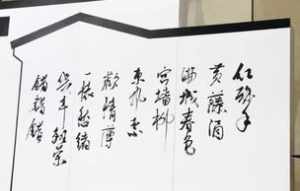 红酥手
黄藤酒
满城春色
宫墙柳
东风恶
歡情薄
一怀愁绪
几年離索
錯錯錯